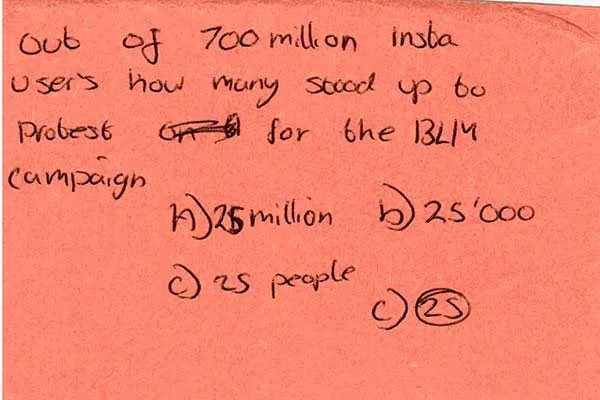 out of 700 million insta
user's how many stood up to
protest for the BLM
campaign
A) 25 million b) 25'000
c) 25 people
c) 25